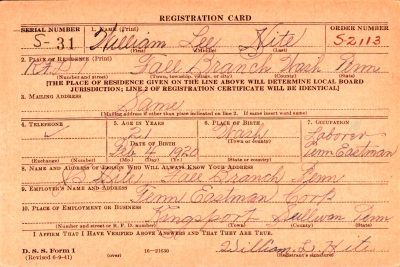 REGISTRATION CARD
SERIAL NUMBER 1. NAME (Print) ORDER NUMBER
S-31 William Lee Hite S2113
(First) (Middle) (Last)
2. PLACE OF RESIDENCE (Print)
R.F.D. Fall Branch Wash Tenn
(Number and street) (Town, township, village, or city) (County) (State)
[THE PLACE OF RESIDENCE GIVEN ON THE LINE ABOVE WILL DETERMINE LOCAL BOARD
JURISDICTION; LINE 2 OF REGISTRATION CERTIFICATE WILL BE IDENTICAL]
3. MAILING ADDRESS
Same
(Mailing address if other than place indicated on line 2. If same insert word same)
4. TELEPHONE 5. AGE IN YEARS 6. PLACE OF BIRTH 7. OCCUPATION
21 Wash Laborer
DATE OF BIRTH (Town or county)
Feb 4 1920 Tenn Eastman
(Exchange) (Number) (Mo.) (Day) (Yr.) (State or country)
8. NAME AND ADDRESS OF PERSON WHO WILL ALWAYS KNOW YOUR ADDRESS
Hite Fall Branch Tenn
9. EMPLOYER'S NAME AND ADDRESS
Tenn Eastman Corp
10. PLACE OF EMPLOYMENT OR BUSINESS
Kingsport Sullivan Tenn
(Number and street or R. F. D. number) (Town) (County) (State)
I AFFIRM THAT I HAVE VERIFIED ABOVE ANSWERS AND THAT THEY ARE TRUE.
D. S. S. Form 1 (over) 16—21630 William L. Hite
(Revised 6-9-41) (Registrant's signature)